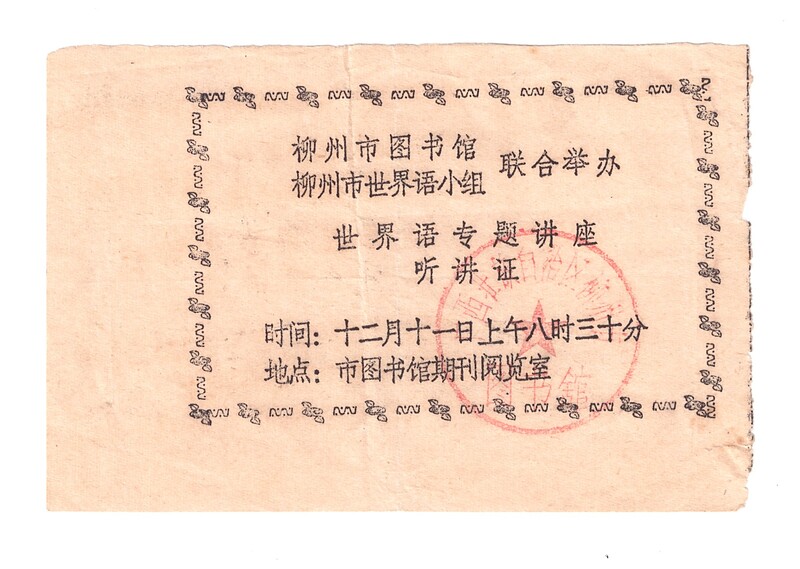 柳州市图书馆
柳州市世界语小组
联合举办
世界语专题讲座
听讲证
时间：十二月十一日上午八时三十分
地点：市图书馆期刊阅览室
图书馆